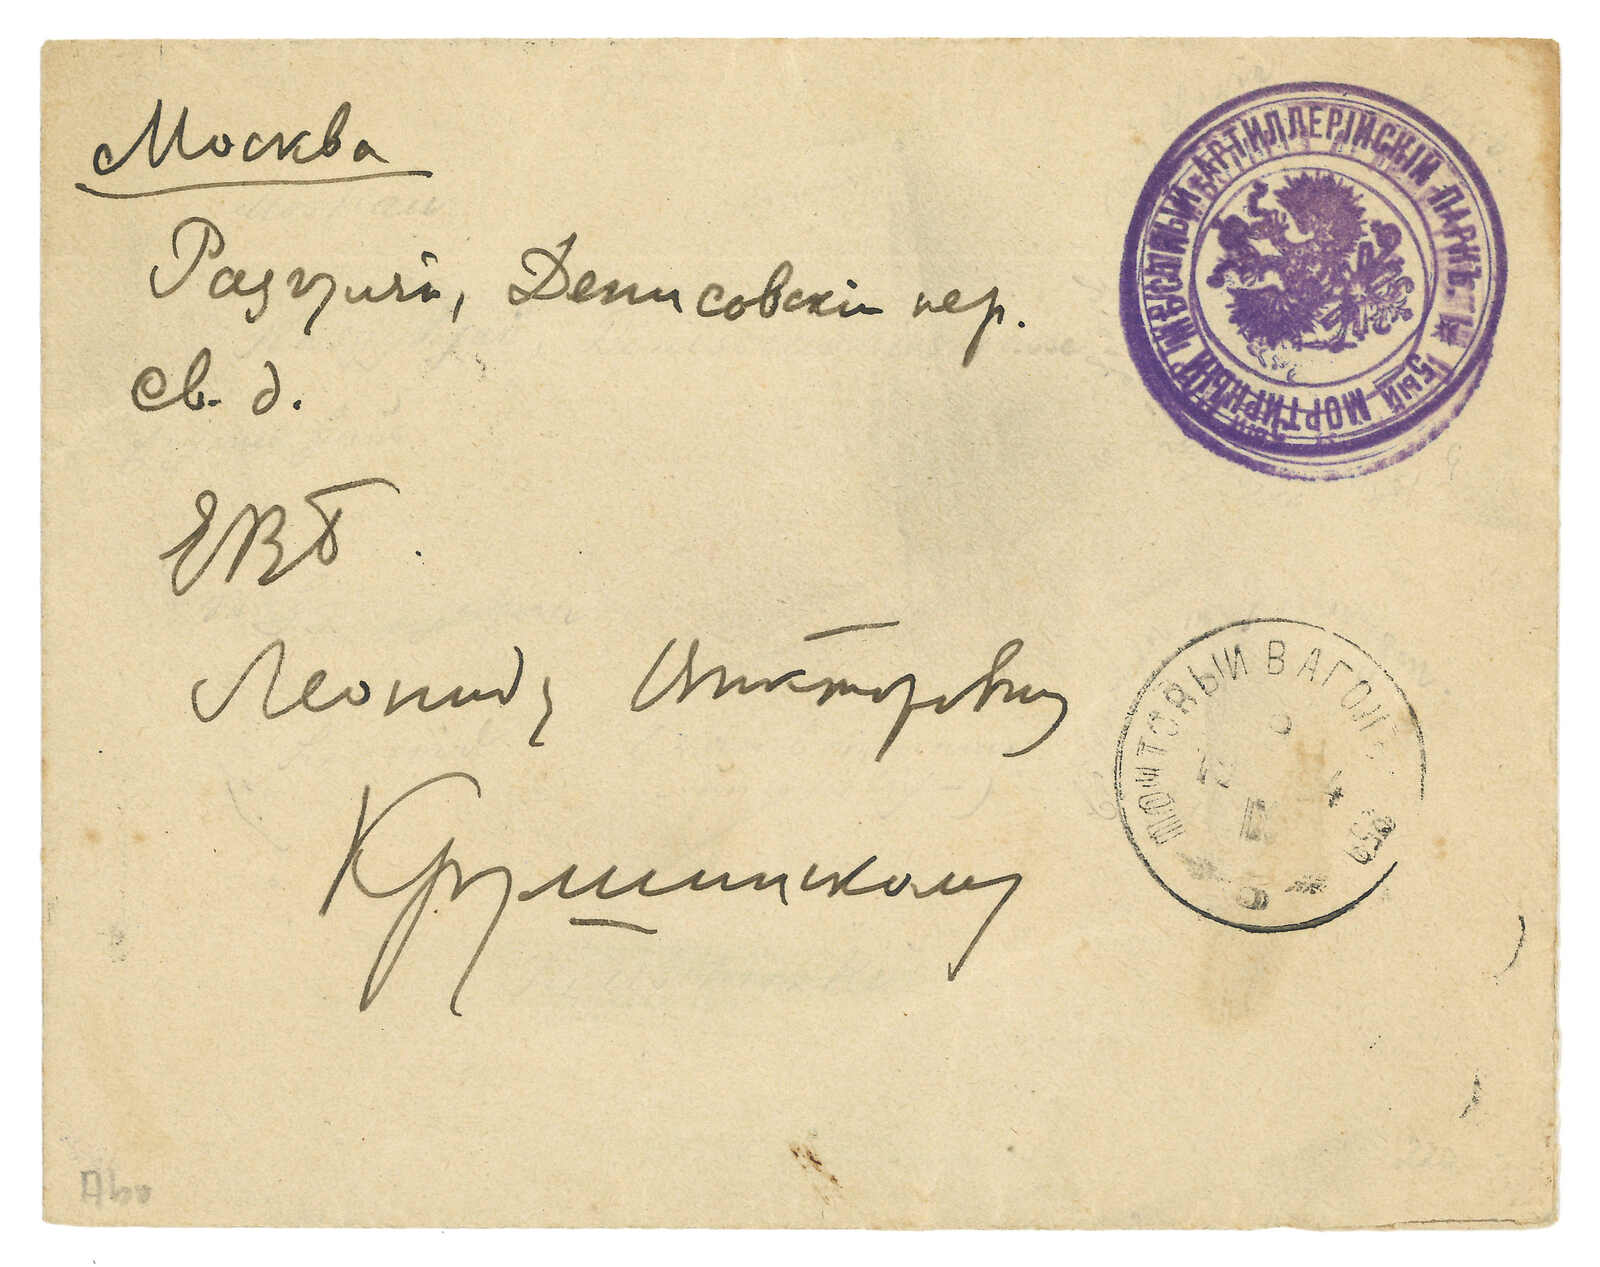 Москва
Разгуляй, Денисовскій пер.
св. д.
ЕВБ.
Леониду Викторовичу
Крушинскому
МОРТИРНЫЙ АРТИЛЛЕРІЙСКІЙ ПАРКЪ
ПОЧТОВЫЙ ВАГОНЪ